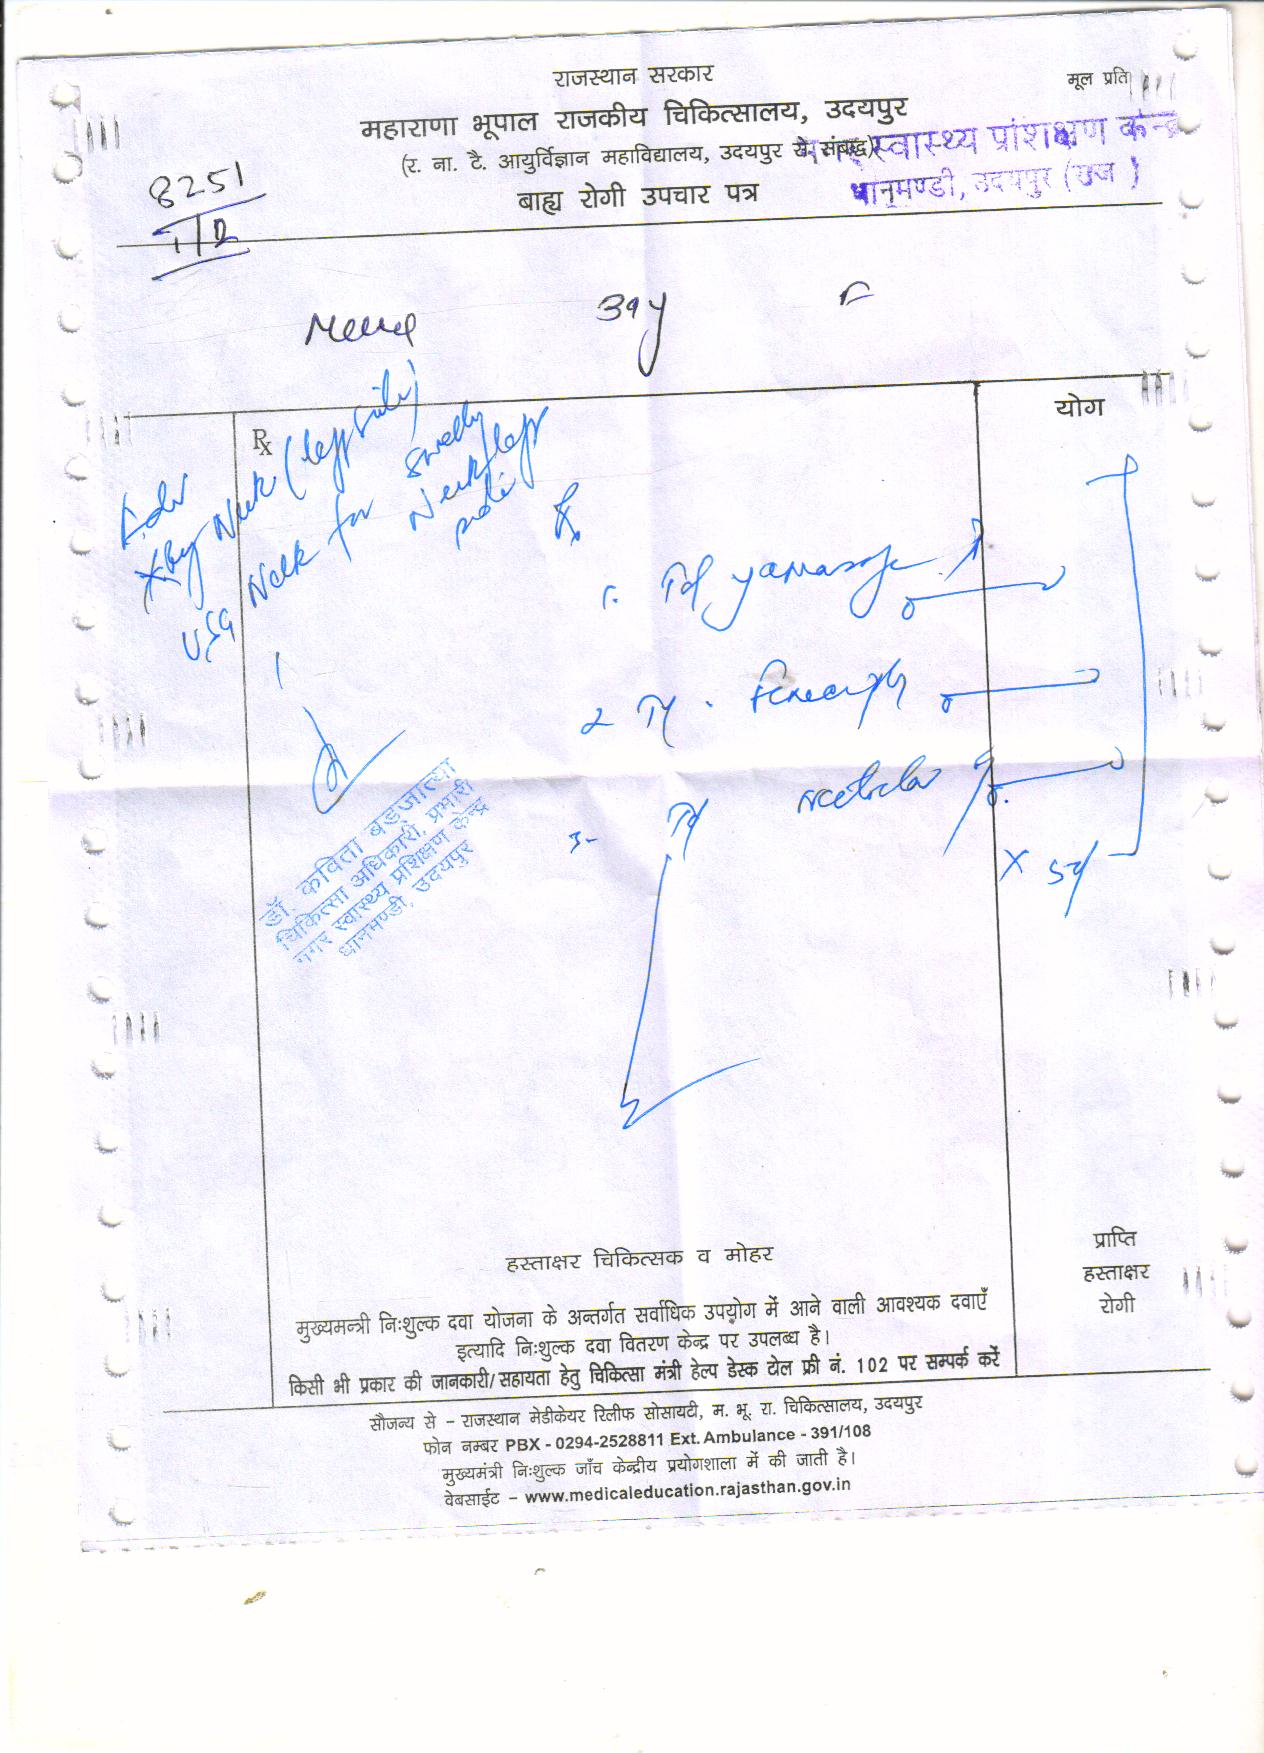 राजस्थान सरकार
मूल प्रति
महाराणा भूपाल राजकीय चिकित्सालय, उदयपुर
(र. ना. टै. आयुर्विज्ञान महाविद्यालय, उदयपुर से संबद्ध)
स्वास्थ्य प्रशिक्षण केन्द्र
बाह्य रोगी उपचार पत्र
धानमण्डी, उदयपुर (राज )
8251
39y
F
Rx
योग
Adv
X-Ray Neck (left side)
USG Neck for swelling
Neck left
side
Rx
1.
2
3-
x 5d
डॉ. कविता बड़जात्या
चिकित्सा अधिकारी, प्रभारी
नगर स्वास्थ्य प्रशिक्षण केन्द्र
धानमण्डी, उदयपुर
हस्ताक्षर चिकित्सक व मोहर
प्राप्ति
हस्ताक्षर
रोगी
मुख्यमन्त्री निःशुल्क दवा योजना के अन्तर्गत सर्वाधिक उपयोग में आने वाली आवश्यक दवाएँ
इत्यादि निःशुल्क दवा वितरण केन्द्र पर उपलब्ध है।
किसी भी प्रकार की जानकारी/सहायता हेतु चिकित्सा मंत्री हेल्प डेस्क टोल फ्री नं. 102 पर सम्पर्क करें
सौजन्य से – राजस्थान मेडीकेयर रिलीफ सोसायटी, म. भू. रा. चिकित्सालय, उदयपुर
फोन नम्बर PBX - 0294-2528811 Ext. Ambulance - 391/108
मुख्यमंत्री निःशुल्क जाँच केन्द्रीय प्रयोगशाला में की जाती है।
वेबसाईट – www.medicaleducation.rajasthan.gov.in